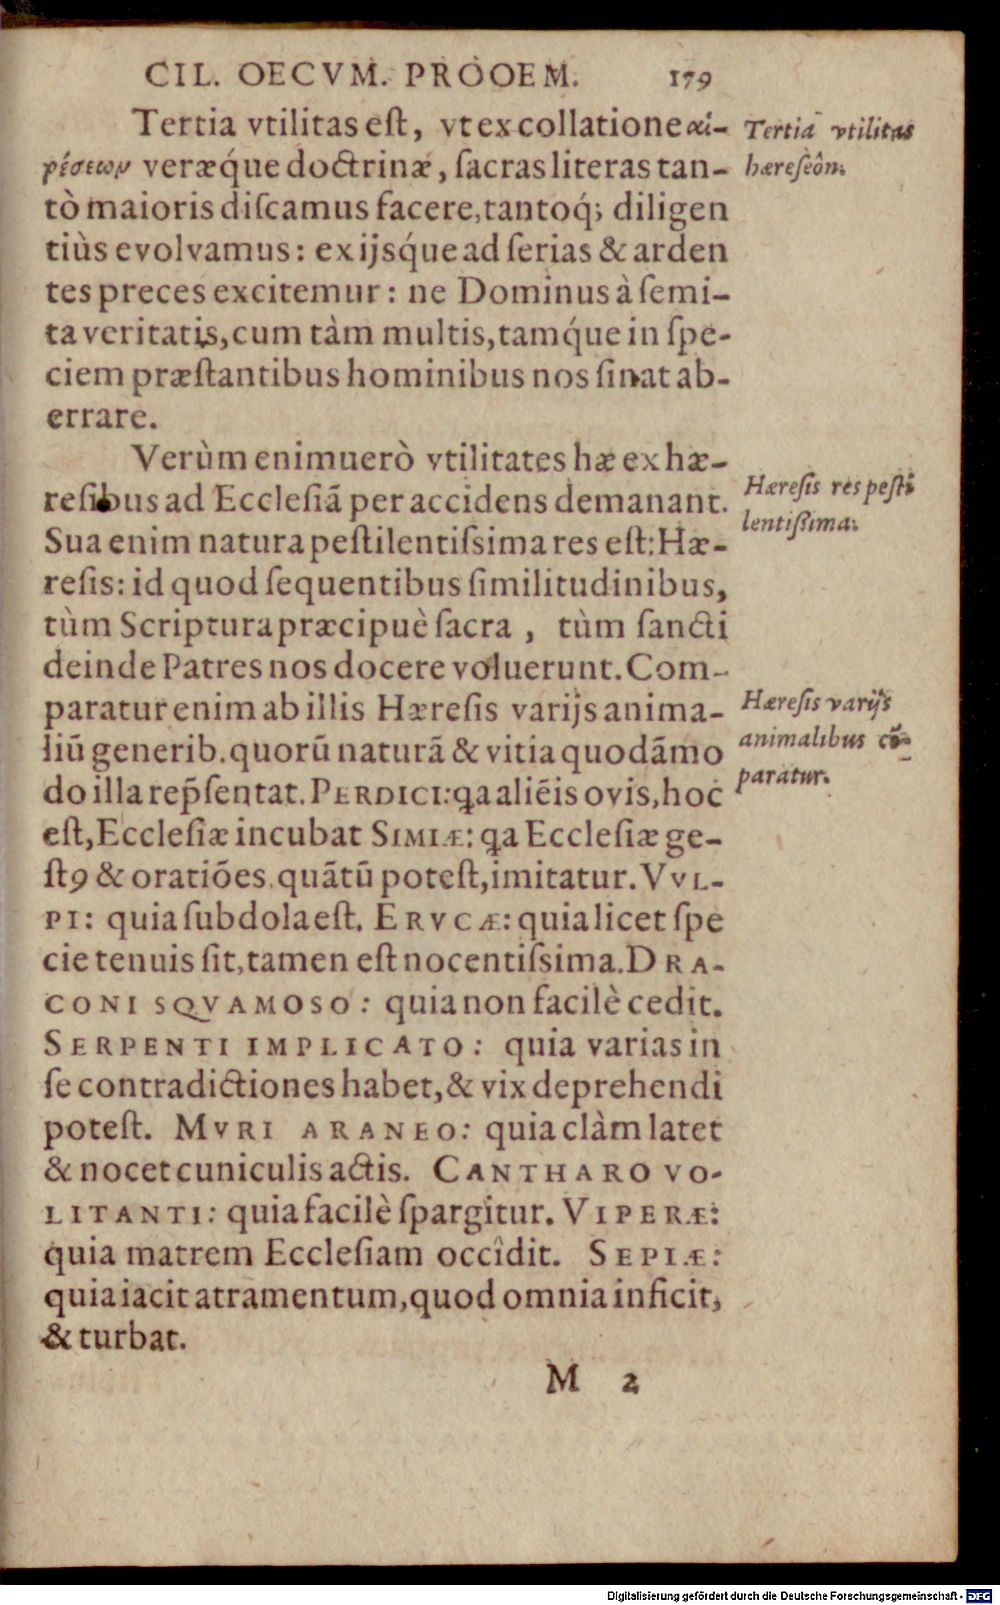 CIL. OECVM. PROOEM. 179
Tertia vtilitas eſt, vt ex collatione αἱ-
ρέσεων veræq́ue doctrinæ, ſacras literas tan-
tò maioris diſcamus facere, tantoq́; diligen
tiùs evolvamus: ex ijsq́ue ad ſerias & arden
tes preces excitemur: ne Dominus à ſemi-
ta veritatis, cum tàm multis, tamq́ue in ſpe-
ciem præſtantibus hominibus nos ſinat ab-
errare.
Tertia vtilitas
hæreſeôn.
Verùm enimuerò vtilitates hæ ex hæ-
reſibus ad Eccleſiã per accidens demanant.
Sua enim natura peſtilentiſsima res eſt: Hæ-
reſis: id quod ſequentibus ſimilitudinibus,
tùm Scriptura præcipuè ſacra, tùm ſancti
deinde Patres nos docere voluerunt. Com-
paratur enim ab illis Hæreſis varijs anima-
liũ generib. quorũ naturã & vitia quodãmo
do illa rep̃ſentat. PERDICI: ꝗa aliẽis ovis, hoc
eſt, Eccleſiæ incubat SIMIÆ: ꝗa Eccleſiæ ge-
ſtꝯ & oratiões, quãtũ poteſt, imitatur. VVL-
PI: quia ſubdola eſt. ERVCÆ: quia licet ſpe
cie tenuis ſit, tamen eſt nocentiſsima. DRA-
CONI SQVAMOSO: quia non facilè cedit.
SERPENTI IMPLICATO: quia varias in
ſe contradictiones habet, & vix deprehendi
poteſt. MVRI ARANEO: quia clàm latet
& nocet cuniculis actis. CANTHARO VO-
LITANTI: quia facilè ſpargitur. VIPERÆ:
quia matrem Eccleſiam occîdit. SEPIÆ:
quia iacit atramentum, quod omnia inficit,
& turbat.
Hæreſis res peſti
lentiſsima.
Hæreſis varijs
animalibus cõ-
paratur.
M 2
Digitalisierung gefördert durch die Deutsche Forschungsgemeinschaft - DFG